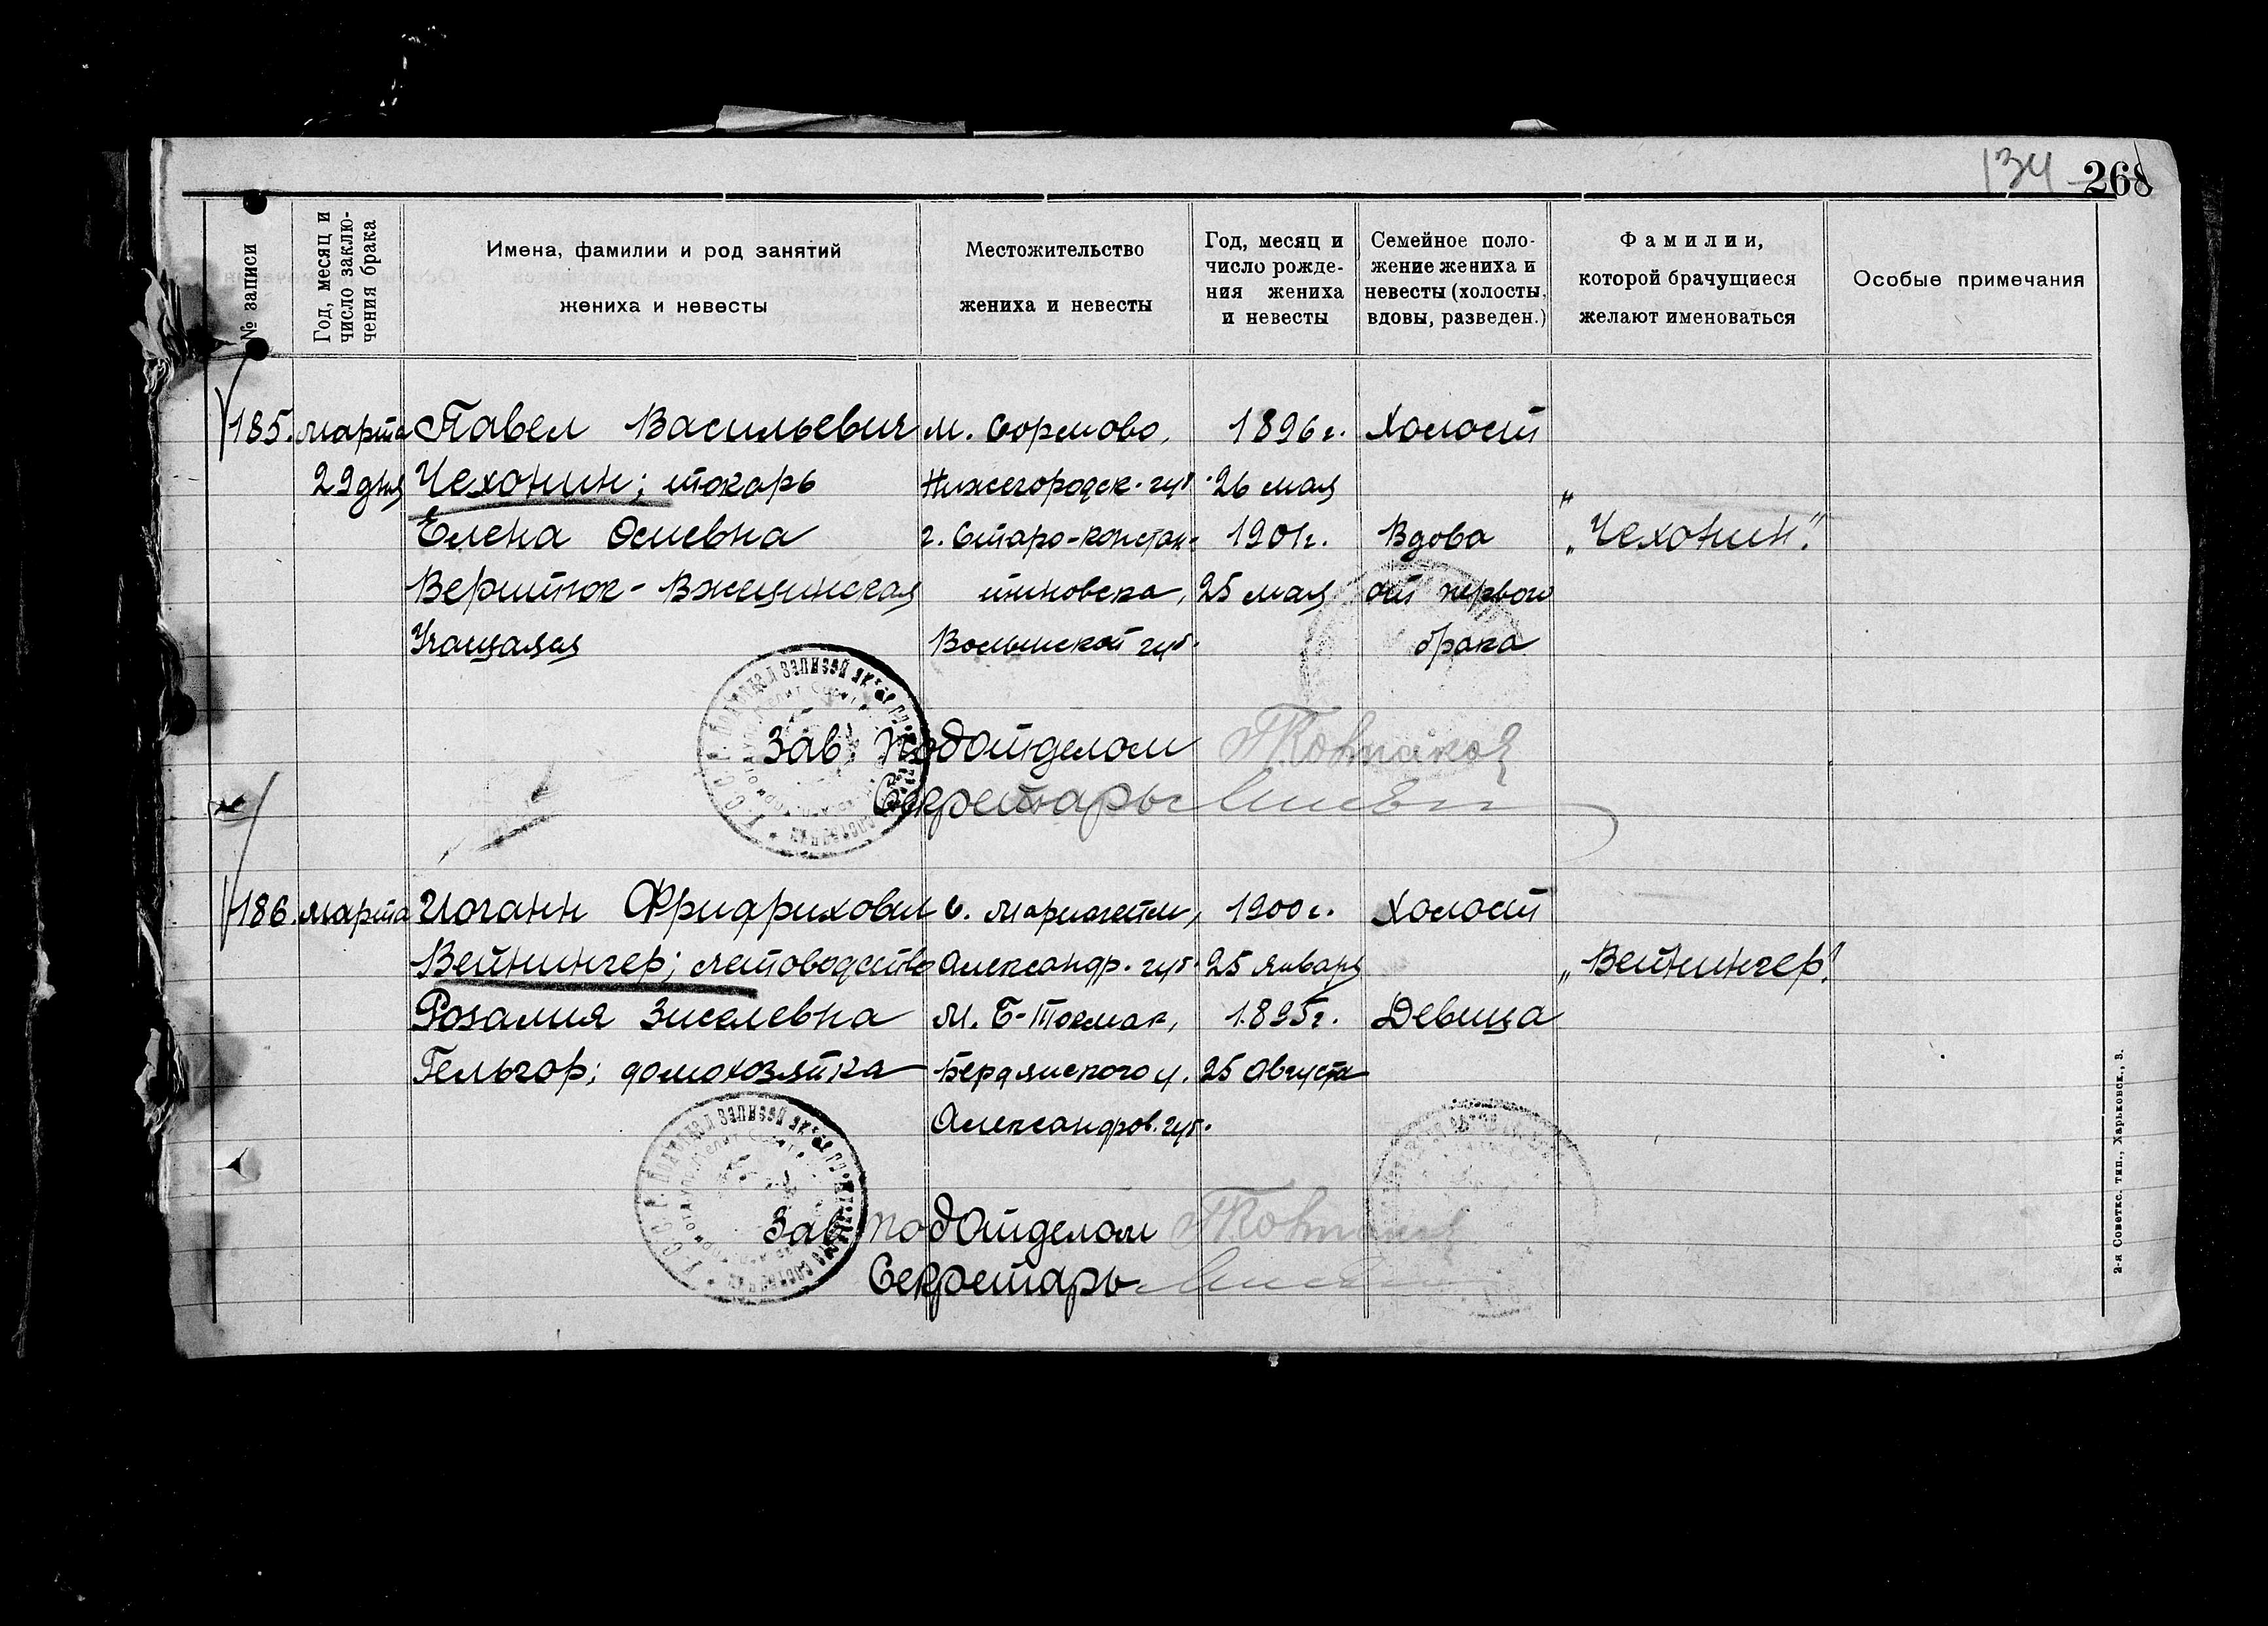 134 268
№ записи
Год, месяц и
число заклю-
чения брака
Имена, фамилии и род занятий
жениха и невесты
Местожительство
жениха и невесты
Год, месяц и
число рожде-
ния жениха
и невесты
Семейное поло-
жение жениха и
невесты (холосты,
вдовы, разведен.)
Фамилии,
которой брачущиеся
желают именоваться
Особые примечания
185. марта Павел Васильевич м. Сормово, 1896 г. Холост
29 дня Чехонин; токарь Нижегородск. губ. 26 мая
Елена Осиевна г. Старо-констан- 1901 г. Вдова „Чехонин".
Веритюк-Вжещинская тиновска, 25 мая от первого
Учащаяся Волынской губ. брака
Зав. подотделом
Секретарь
186. марта Иоганн Фридрихович с. Мариагейм, 1900 г. Холост
Вейнингер; счетоводство Александр. губ. 25 января „Вейнингер".
Розалия Зиселевна М. Б-Токмак, 1895 г. Девица
Гельгор; домохозяйка Бердянского у. 25 Августа
Александров. губ.
Зав. подотделом
Секретарь
2-я Советск. тип., Харьковск., 3.